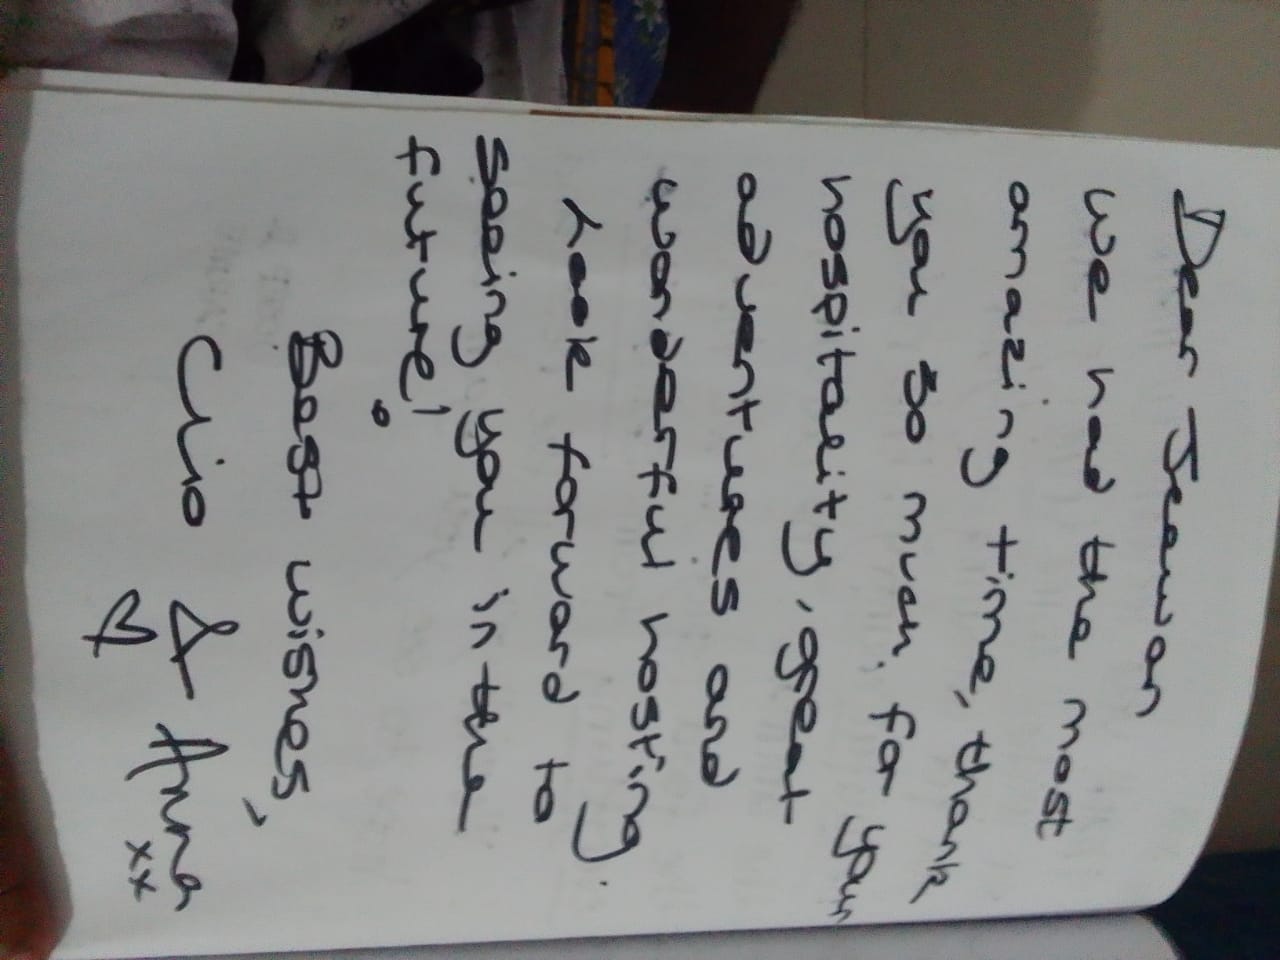 Dear Jeewan
we had the most
amazing time, thank
you so much for your
hospitality, great
adventures and
wonderful hosting.
Look forward to
seeing you in the
future!
Best wishes,
Clio & Anna
♡ xx